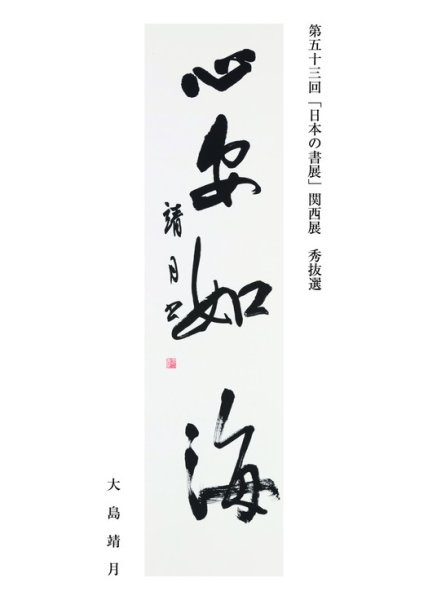 第五十三回「日本の書展」関西展　秀抜選
心安如海
靖月書
大島靖月